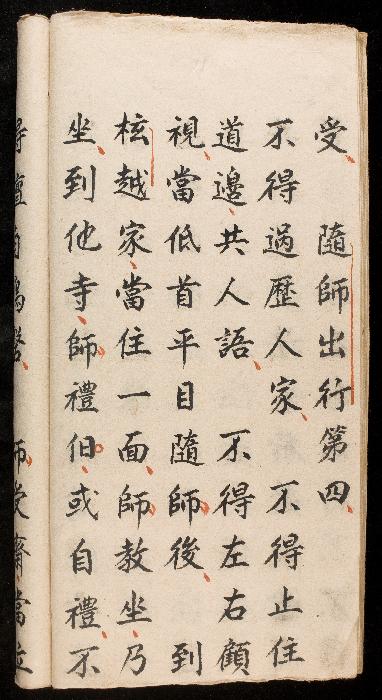 受 隨師出行第四
不得過歷人家 不得止住
道邊共人語 不得左右顧
視當低首平目隨師後 到
桉越家當住一面師教坐乃
坐到他寺師禮佀或自禮不